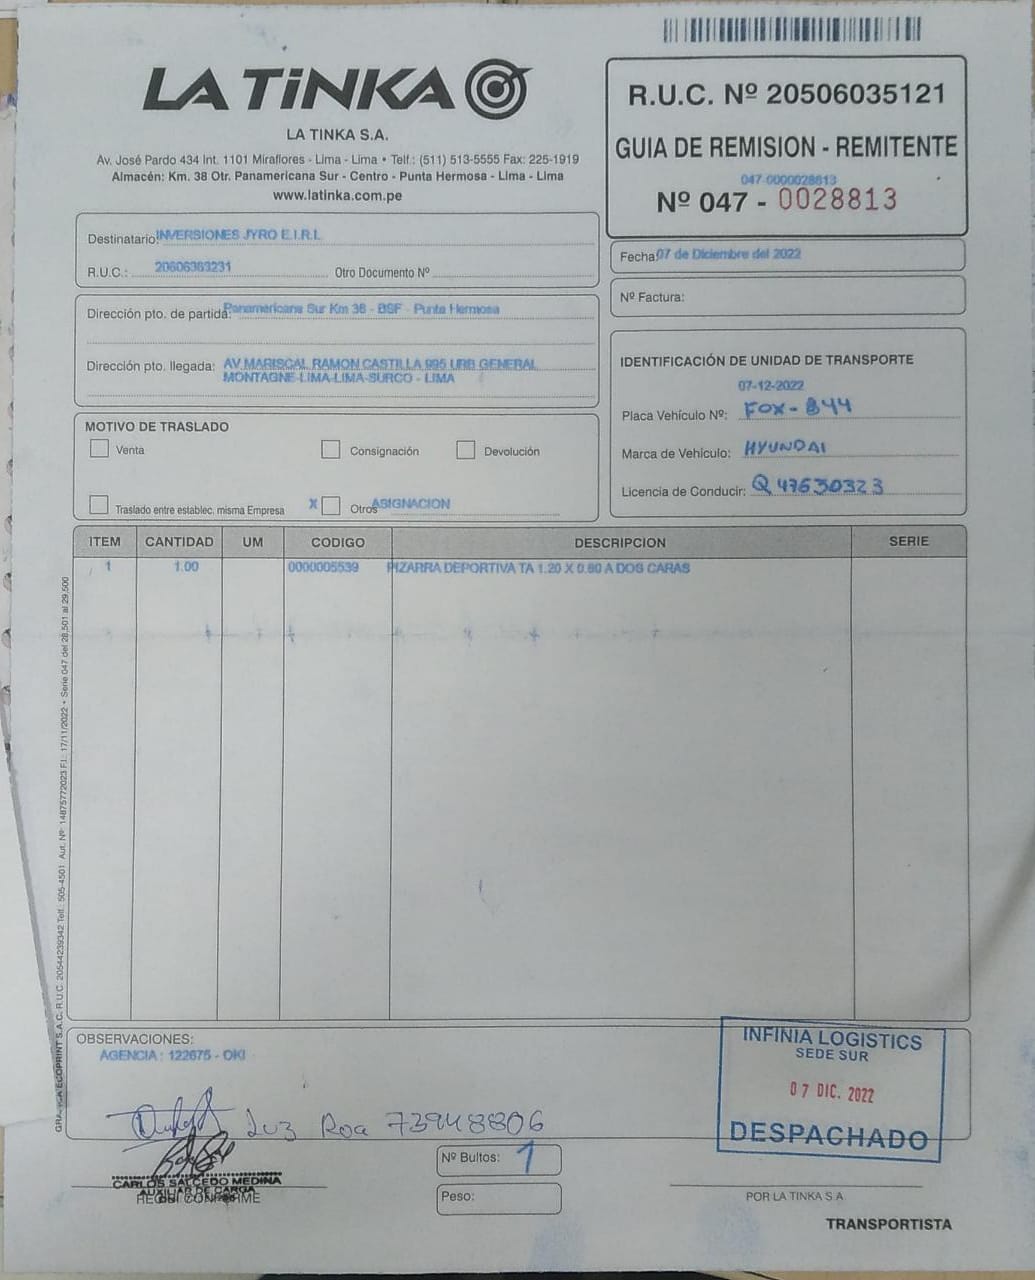 LA TiNKA
LA TINKA S.A.
Av. José Pardo 434 Int. 1101 Miraflores - Lima - Lima • Telf.: (511) 513-5555 Fax: 225-1919
Almacén: Km. 38 Otr. Panamericana Sur - Centro - Punta Hermosa - Lima - Lima
www.latinka.com.pe
R.U.C. Nº 20506035121
GUIA DE REMISION - REMITENTE
047-0000028813
Nº 047 - 0028813
Destinatario: INVERSIONES JYRO E.I.R.L
R.U.C.: 20606363231 Otro Documento Nº
Fecha: 07 de Diciembre del 2022
Nº Factura:
Dirección pto. de partida: Panamericana Sur Km 38 - BSF - Punta Hermosa
Dirección pto. llegada: AV MARISCAL RAMON CASTILLA 995 URB GENERAL
MONTAGNE-LIMA-LIMA-SURCO - LIMA
IDENTIFICACIÓN DE UNIDAD DE TRANSPORTE
07-12-2022
Placa Vehículo Nº: FOX-844
Marca de Vehículo: HYUNDAI
Licencia de Conducir: Q 47630323
MOTIVO DE TRASLADO
Venta Consignación Devolución
Traslado entre establec. misma Empresa X Otros ASIGNACION
ITEM CANTIDAD UM CODIGO DESCRIPCION SERIE
1 1.00 0000005539 PIZARRA DEPORTIVA TA 1.20 X 0.80 A DOS CARAS
GRAFICA ECOPRINT S.A.C. R.U.C. 20544239342 Telf.: 505-4501 Aut. Nº 14875772023 F.I.: 17/11/2022 • Serie 047 del 28,501 al 29,500
OBSERVACIONES:
AGENCIA : 122675 - OKI
INFINIA LOGISTICS
SEDE SUR
07 DIC. 2022
DESPACHADO
Luz Roa 73948806
CARLOS SALCEDO MEDINA
AUXILIAR DE CARGA
RECIBI CONFORME
Nº Bultos: 1
Peso:
POR LA TINKA S.A
TRANSPORTISTA